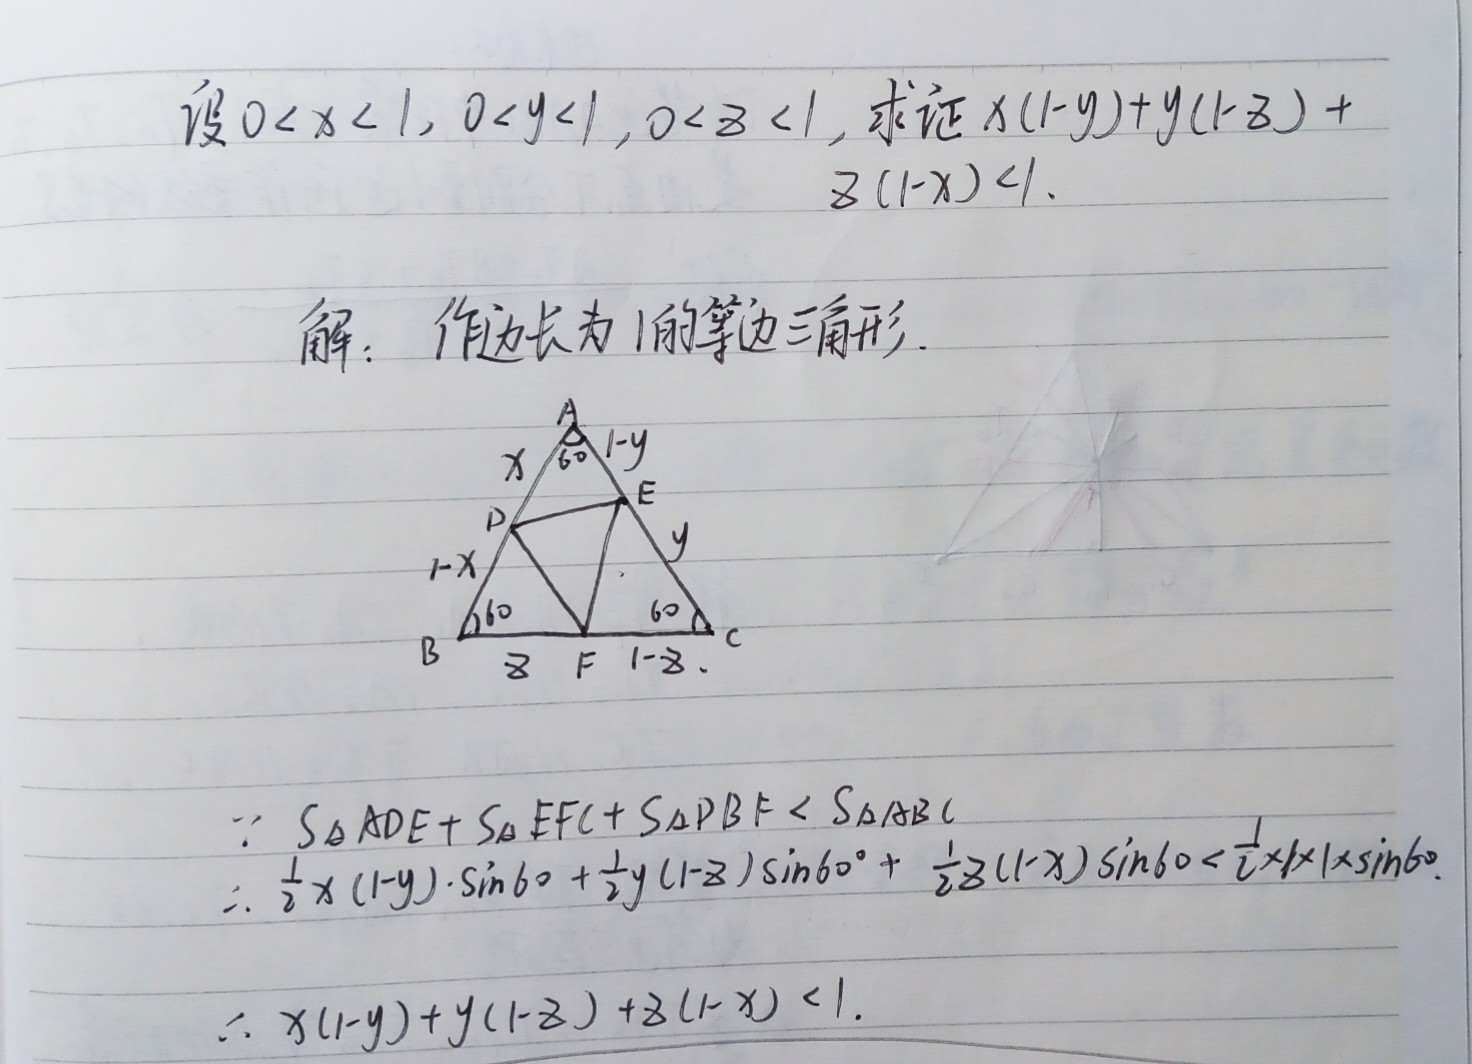 设0<x<1, 0<y<1, 0<z<1, 求证 x(1-y)+y(1-z)+
z(1-x)<1.
解: 作边长为1的等边三角形.
A
x 60 1-y
D E
1-x y
60 60
B z F 1-z. C
∵ S△ADE+S△EFC+S△DBF<S△ABC
∴ 1/2x(1-y)·sin60+1/2y(1-z)sin60°+1/2z(1-x)sin60<1/2×1×1×sin60.
∴ x(1-y)+y(1-z)+z(1-x)<1.